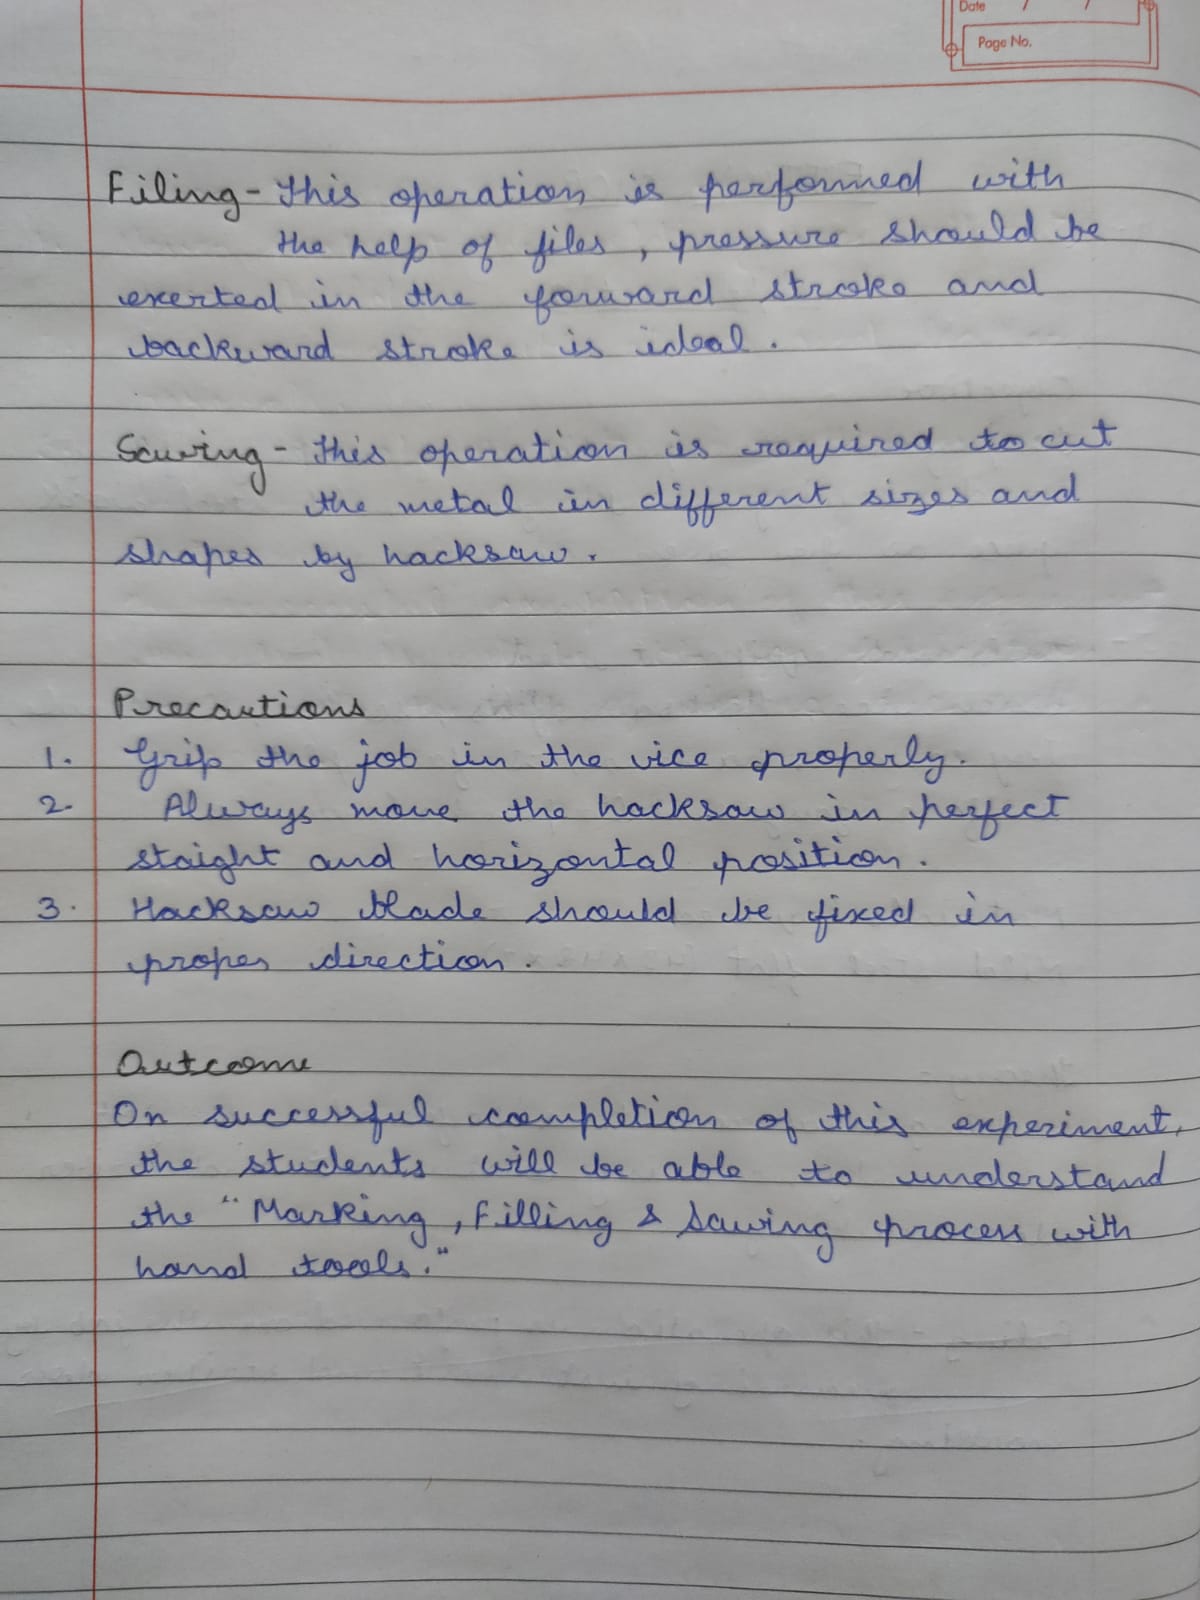 Date / /
Page No.
Filing - This operation is performed with
the help of files, pressure should be
exerted in the forward stroke and
backward stroke is ideal.
Sawing - This operation is required to cut
the metal in different sizes and
shapes by hacksaw.
Precautions
1. Grip the job in the vice properly.
2. Always move the hacksaw in perfect
staight and horizontal position.
3. Hacksaw blade should be fixed in
proper direction.
Outcome
On successful completion of this experiment,
the students will be able to understand
the "Marking, Filling & Sawing process with
hand tools."